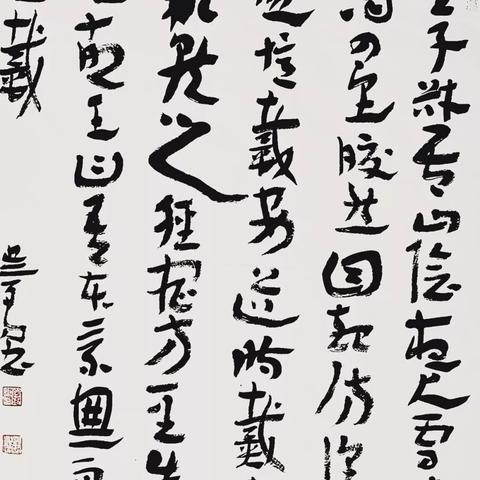 子猷居山陰夜大雪
四望皎然因起彷徨
憶戴安道時戴
就之經宿方至造
故王曰吾本乘興而
戴